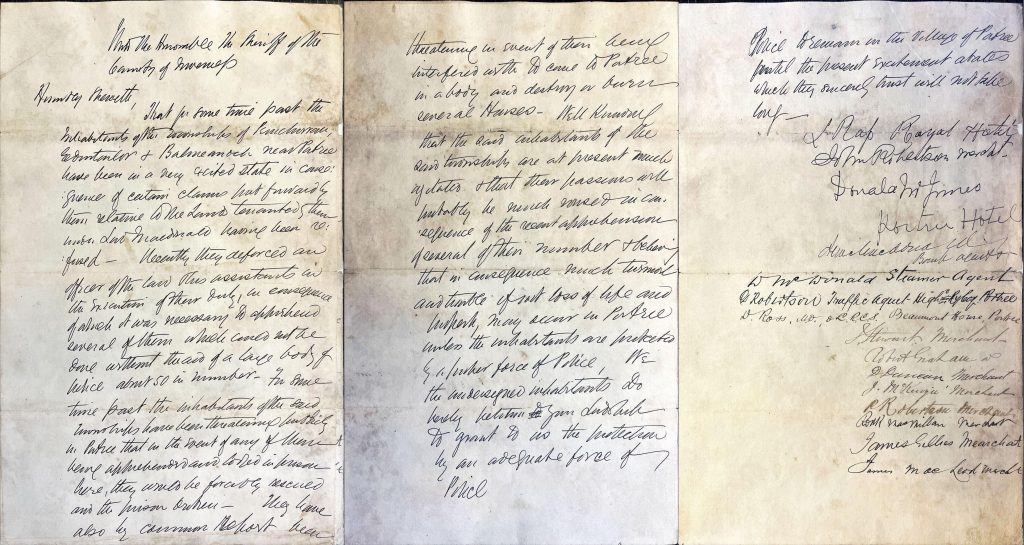 Unto The Honorable The Sheriff of the
County of Inverness
Humbly Sheweth,
That for some time past the
Inhabitants of the townships of
& Balmeanach near Portree
have been in a very excited state in conse-
quence of certain claims put forward by
them relative to the Lands tenanted by them
Lord Macdonald having been re-
fused — Recently they deforced an
officer of the law & his assistants in
the execution of their duty, in consequence
of which it was necessary to apprehend
several of them which could not be
done without the aid of a large body of
police about 50 in number — For some
time past the inhabitants of the said
townships have been threatening publicly
in Portree that in the event of any of them
being apprehended and lodged in prison
here, they would be forcibly rescued
and the prison broken — They have
also by common Report been
threatening in event of their being
interfered with to come to Portree
in a body and destroy or burn
several Houses — Well knowing
that the said inhabitants of the
said townships are at present much
agitated & that their passions will
probably be much roused in con-
sequence of the recent apprehension
of several of their number & believing
that in consequence much turmoil
and trouble if not loss of life and
property may occur in Portree
unless the inhabitants are protected
by a proper force of Police, We
the undersigned inhabitants Do
hereby petition your Lordship
To grant to us the protection
by an adequate force of
Police
Police to remain in the village of Portree
until the present excitement abates
which they sincerely trust will not take
long —
Royal Hotel
John Robertson Mercht.
Donald McInnes
Portree Hotel
Bank
D McDonald Steamer Agent
D Robertson Traffic Agent Portree
D. Ross, Beaumont House Portree
J Stewart Merchant
Robert Graham
D Duncan Merchant
J. McKenzie Merchant
P Robertson Merchant
Macmillan Merchant
James Gillies Mearchat
James Mac Leod